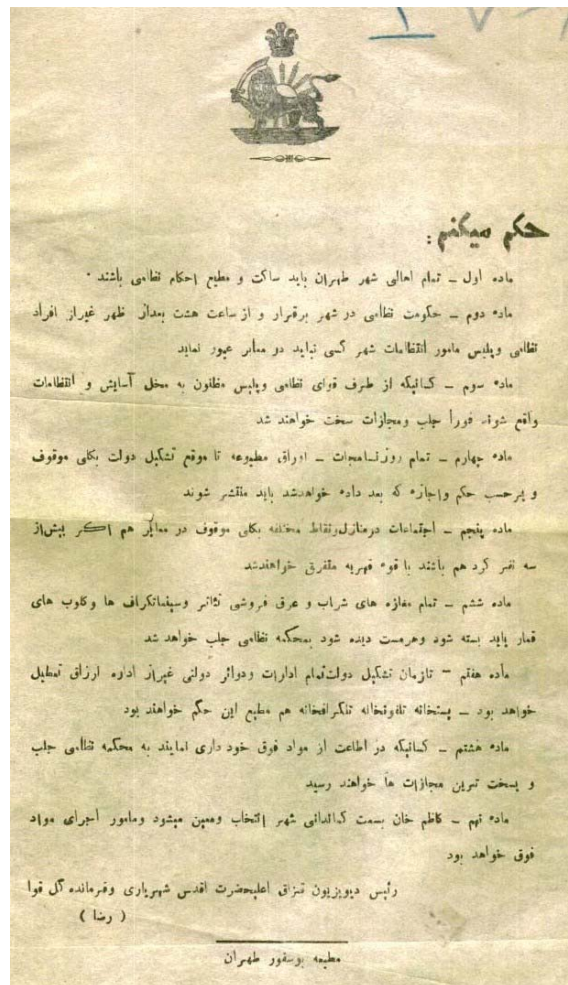 حکم میکنم :
ماده اول – تمام اهالی شهر طهران باید ساکت و مطیع احکام نظامی باشند ·
ماده دوم – حکومت نظامی در شهر برقرار و از ساعت هشت بعداز ظهر غیراز افراد
نظامی وپلیس مامور انتظامات شهر کسی نباید در معابر عبور نماید
ماده سوم – کسانیکه از طرف قوای نظامی وپلیس مظنون به مخل آسایش و انتظامات
واقع شوند فوراً جلب ومجازات سخت خواهند شد
ماده چهارم – تمام روزنامجات – اوراق مطبوعه تا موقع تشکیل دولت بکلی موقوف
و برحسب حکم واجازه که بعد داده خواهدشد باید منتشر شوند
ماده پنجم – اجتماعات درمنازل ونقاط مختلفه بکلی موقوف در معابر هم اگر بیش از
سه نفر گرد هم باشند با قوه قهریه متفرق خواهندشد
ماده ششم – تمام مغازه های شراب و عرق فروشی تئاتر وسینماتگراف ها وکلوب های
قمار باید بسته شود وهرمست دیده شود بمحکمه نظامی جلب خواهد شد
ماده هفتم – تازمان تشکیل دولت تمام ادارات ودوائر دولتی غیراز اداره ارزاق تعطیل
خواهد بود – پستخانه تلفونخانه تلگرافخانه هم مطیع این حکم خواهند بود
ماده هشتم – کسانیکه در اطاعت از مواد فوق خود داری نمایند به محکمه نظامی جلب
و بسخت ترین مجازات ها خواهند رسید
ماده نهم – کاظم خان بسمت کماندانی شهر انتخاب ومعین میشود ومامور اجرای مواد
فوق خواهد بود
رئیس دیویزیون قزاق اعلیحضرت اقدس شهریاری وفرمانده کل قوا
( رضا )
مطبعه بوسفور طهران